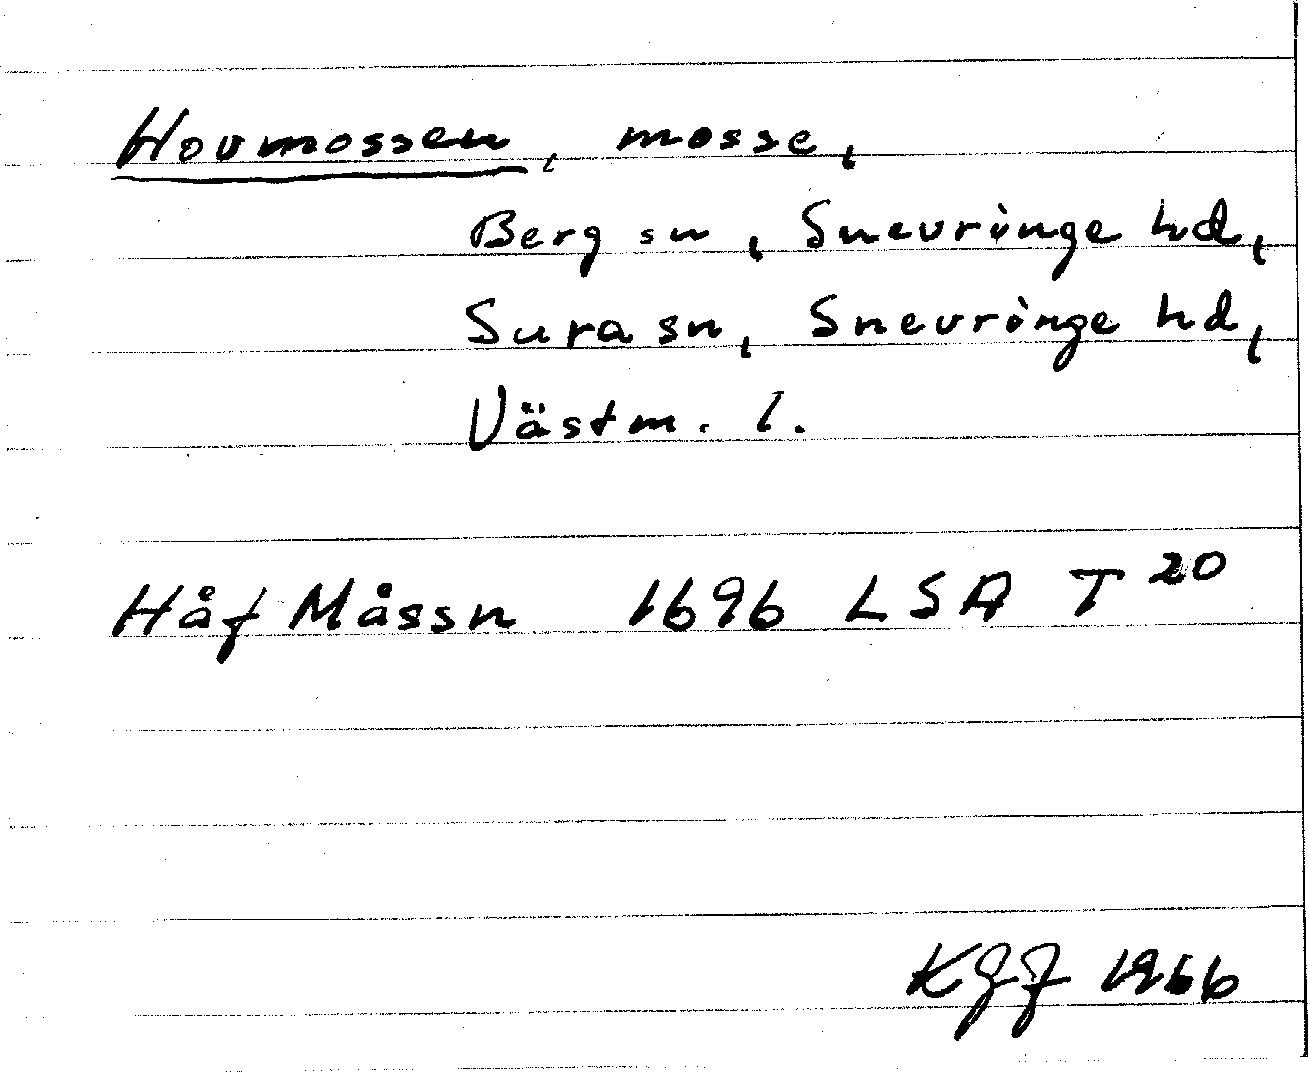 Hovmossen, mosse,
Berg sn, Snevringe hd,
Sura sn, Snevringe hd,
Västm. l.
Håf Måssn 1696 LSA T 20
KGJ 1966